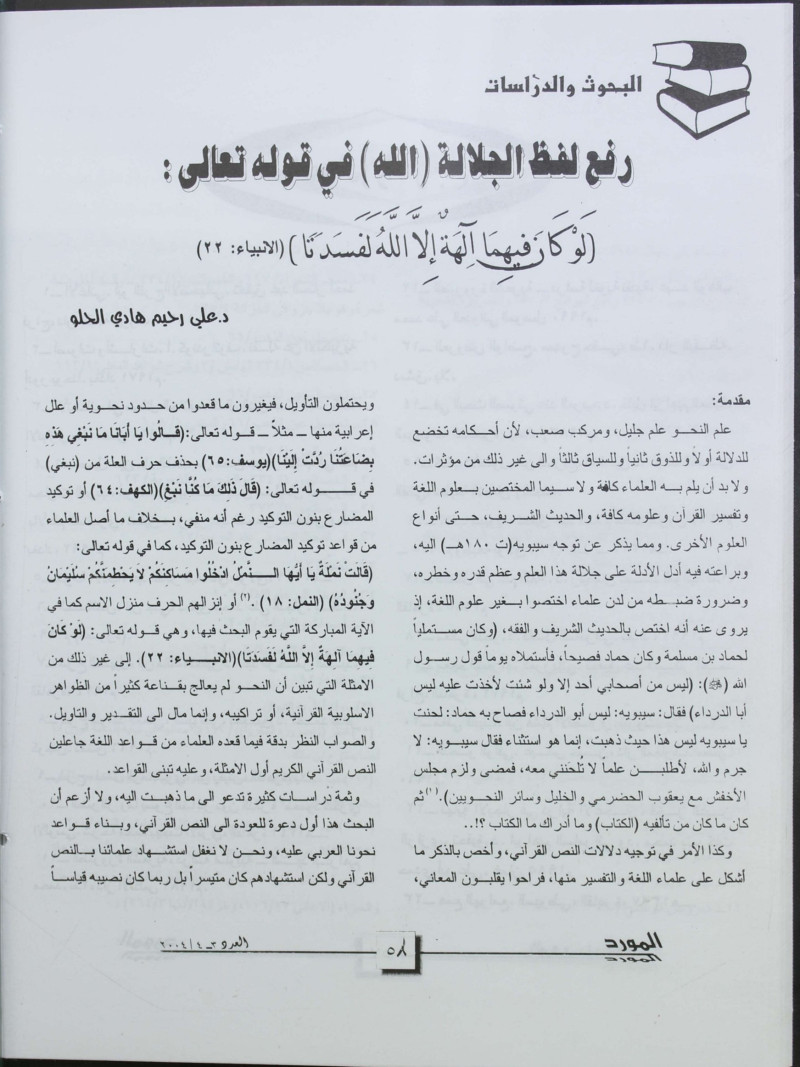 البحوث والدراسات
رفع لفظ الجلالة (الله) في قوله تعالى:
(لَوْ كَانَ فِيهِمَا آلِهَةٌ إِلاَّ اللَّهُ لَفَسَدَتَا) (الانبياء: ٢٢)
د.علي رحيم هادي الحلو
مقدمة:
علم النحو علم جليل، ومركب صعب، لأن أحكامه تخضع
للدلالة أولاً وللذوق ثانياً وللسياق ثالثاً والى غير ذلك من مؤثرات.
ولابد أن يلم به العلماء كافة ولا سيما المختصين بعلوم اللغة
وتفسير القرآن وعلومه كافة، والحديث الشريف، حتى أنواع
العلوم الأخرى. ومما يذكر عن توجه سيبويه(ت ١٨٠هـ) اليه،
وبراعته فيه أدل الأدلة على جلالة هذا العلم وعظم قدره وخطره،
وضرورة ضبطه من لدن علماء اختصوا بغير علوم اللغة، إذ
يروى عنه أنه اختص بالحديث الشريف والفقه، (وكان مستملياً
لحماد بن مسلمة وكان حماد فصيحاً، فأستملاه يوماً قول رسول
الله (ﷺ): (ليس من أصحابي أحد إلا ولو شئت لأخذت عليه ليس
أبا الدرداء) فقال: سيبويه: ليس أبو الدرداء فصاح به حماد: لحنت
يا سيبويه ليس هذا حيث ذهبت، إنما هو استثناء فقال سيبويه: لا
جرم والله، لأطلبن علماً لا تُلحَنني معه، فمضى ولزم مجلس
الأخفش مع يعقوب الحضرمي والخليل وسائر النحويين).(١) ثم
كان ما كان من تأليفه (الكتاب) وما أدراك ما الكتاب ؟!..
وكذا الأمر في توجيه دلالات النص القرآني، وأخص بالذكر ما
أشكل على علماء اللغة والتفسير منها، فراحوا يقلبون المعاني،
ويحتملون التأويل، فيغيرون ما قعدوا من حدود نحوية أو علل
إعرابية منها ــ مثلاً ــ قوله تعالى: (قَالُوا يَا أَبَانَا مَا نَبْغي هَذِهِ
بِضَاعَتُنَا رُدَّتْ إِلَيْنَا)(يوسف: ٦٥) بحذف حرف العلة من (نبغي)
في قوله تعالى: (قَالَ ذَلِكَ مَا كُنَّا نَبْغِ)(الكهف: ٦٤) أو توكيد
المضارع بنون التوكيد رغم أنه منفي، بخلاف ما أصل العلماء
من قواعد توكيد المضارع بنون التوكيد، كما في قوله تعالى:
(قَالَتْ نَمْلَةٌ يَا أَيُّهَا النَّمْلُ ادْخُلُوا مَسَاكِنَكُمْ لَا يَحْطِمَنَّكُمْ سُلَيْمَانُ
وَجُنُودُهُ) (النمل: ١٨) .(٢) أو إنزالهم الحرف منزل الاسم كما في
الآية المباركة التي يقوم البحث فيها، وهي قوله تعالى: (لَوْ كَانَ
فِيهِمَا آلِهَةٌ إِلاَّ اللَّهُ لَفَسَدَتَا)(الانبياء: ٢٢). إلى غير ذلك من
الامثلة التي تبين أن النحو لم يعالج بقناعة كثيراً من الظواهر
الاسلوبية القرآنية، أو تراكيبه، وإنما مال الى التقدير والتاويل.
والصواب النظر بدقة فيما قعده العلماء من قواعد اللغة جاعلين
النص القرآني الكريم أول الامثلة، وعليه تبنى القواعد.
وثمة دراسات كثيرة تدعو الى ما ذهبت اليه، ولا أزعم أن
البحث هذا أول دعوة للعودة الى النص القرآني، وبناء قواعد
نحونا العربي عليه، ونحن لا نغفل استشهاد علمائنا بالنص
القرآني ولكن استشهادهم كان متيسراً بل ربما كان نصيبه قياساً
المورد
٥٨
العدد ٣ـ٤ /٢٠٠٤